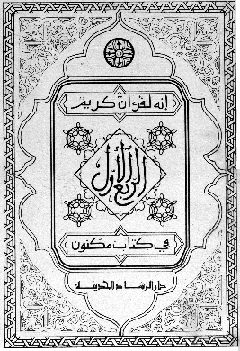 إنه لقرءان كريم
الربع الأول
في كتاب مكنون
دار الرشاد الحديثة